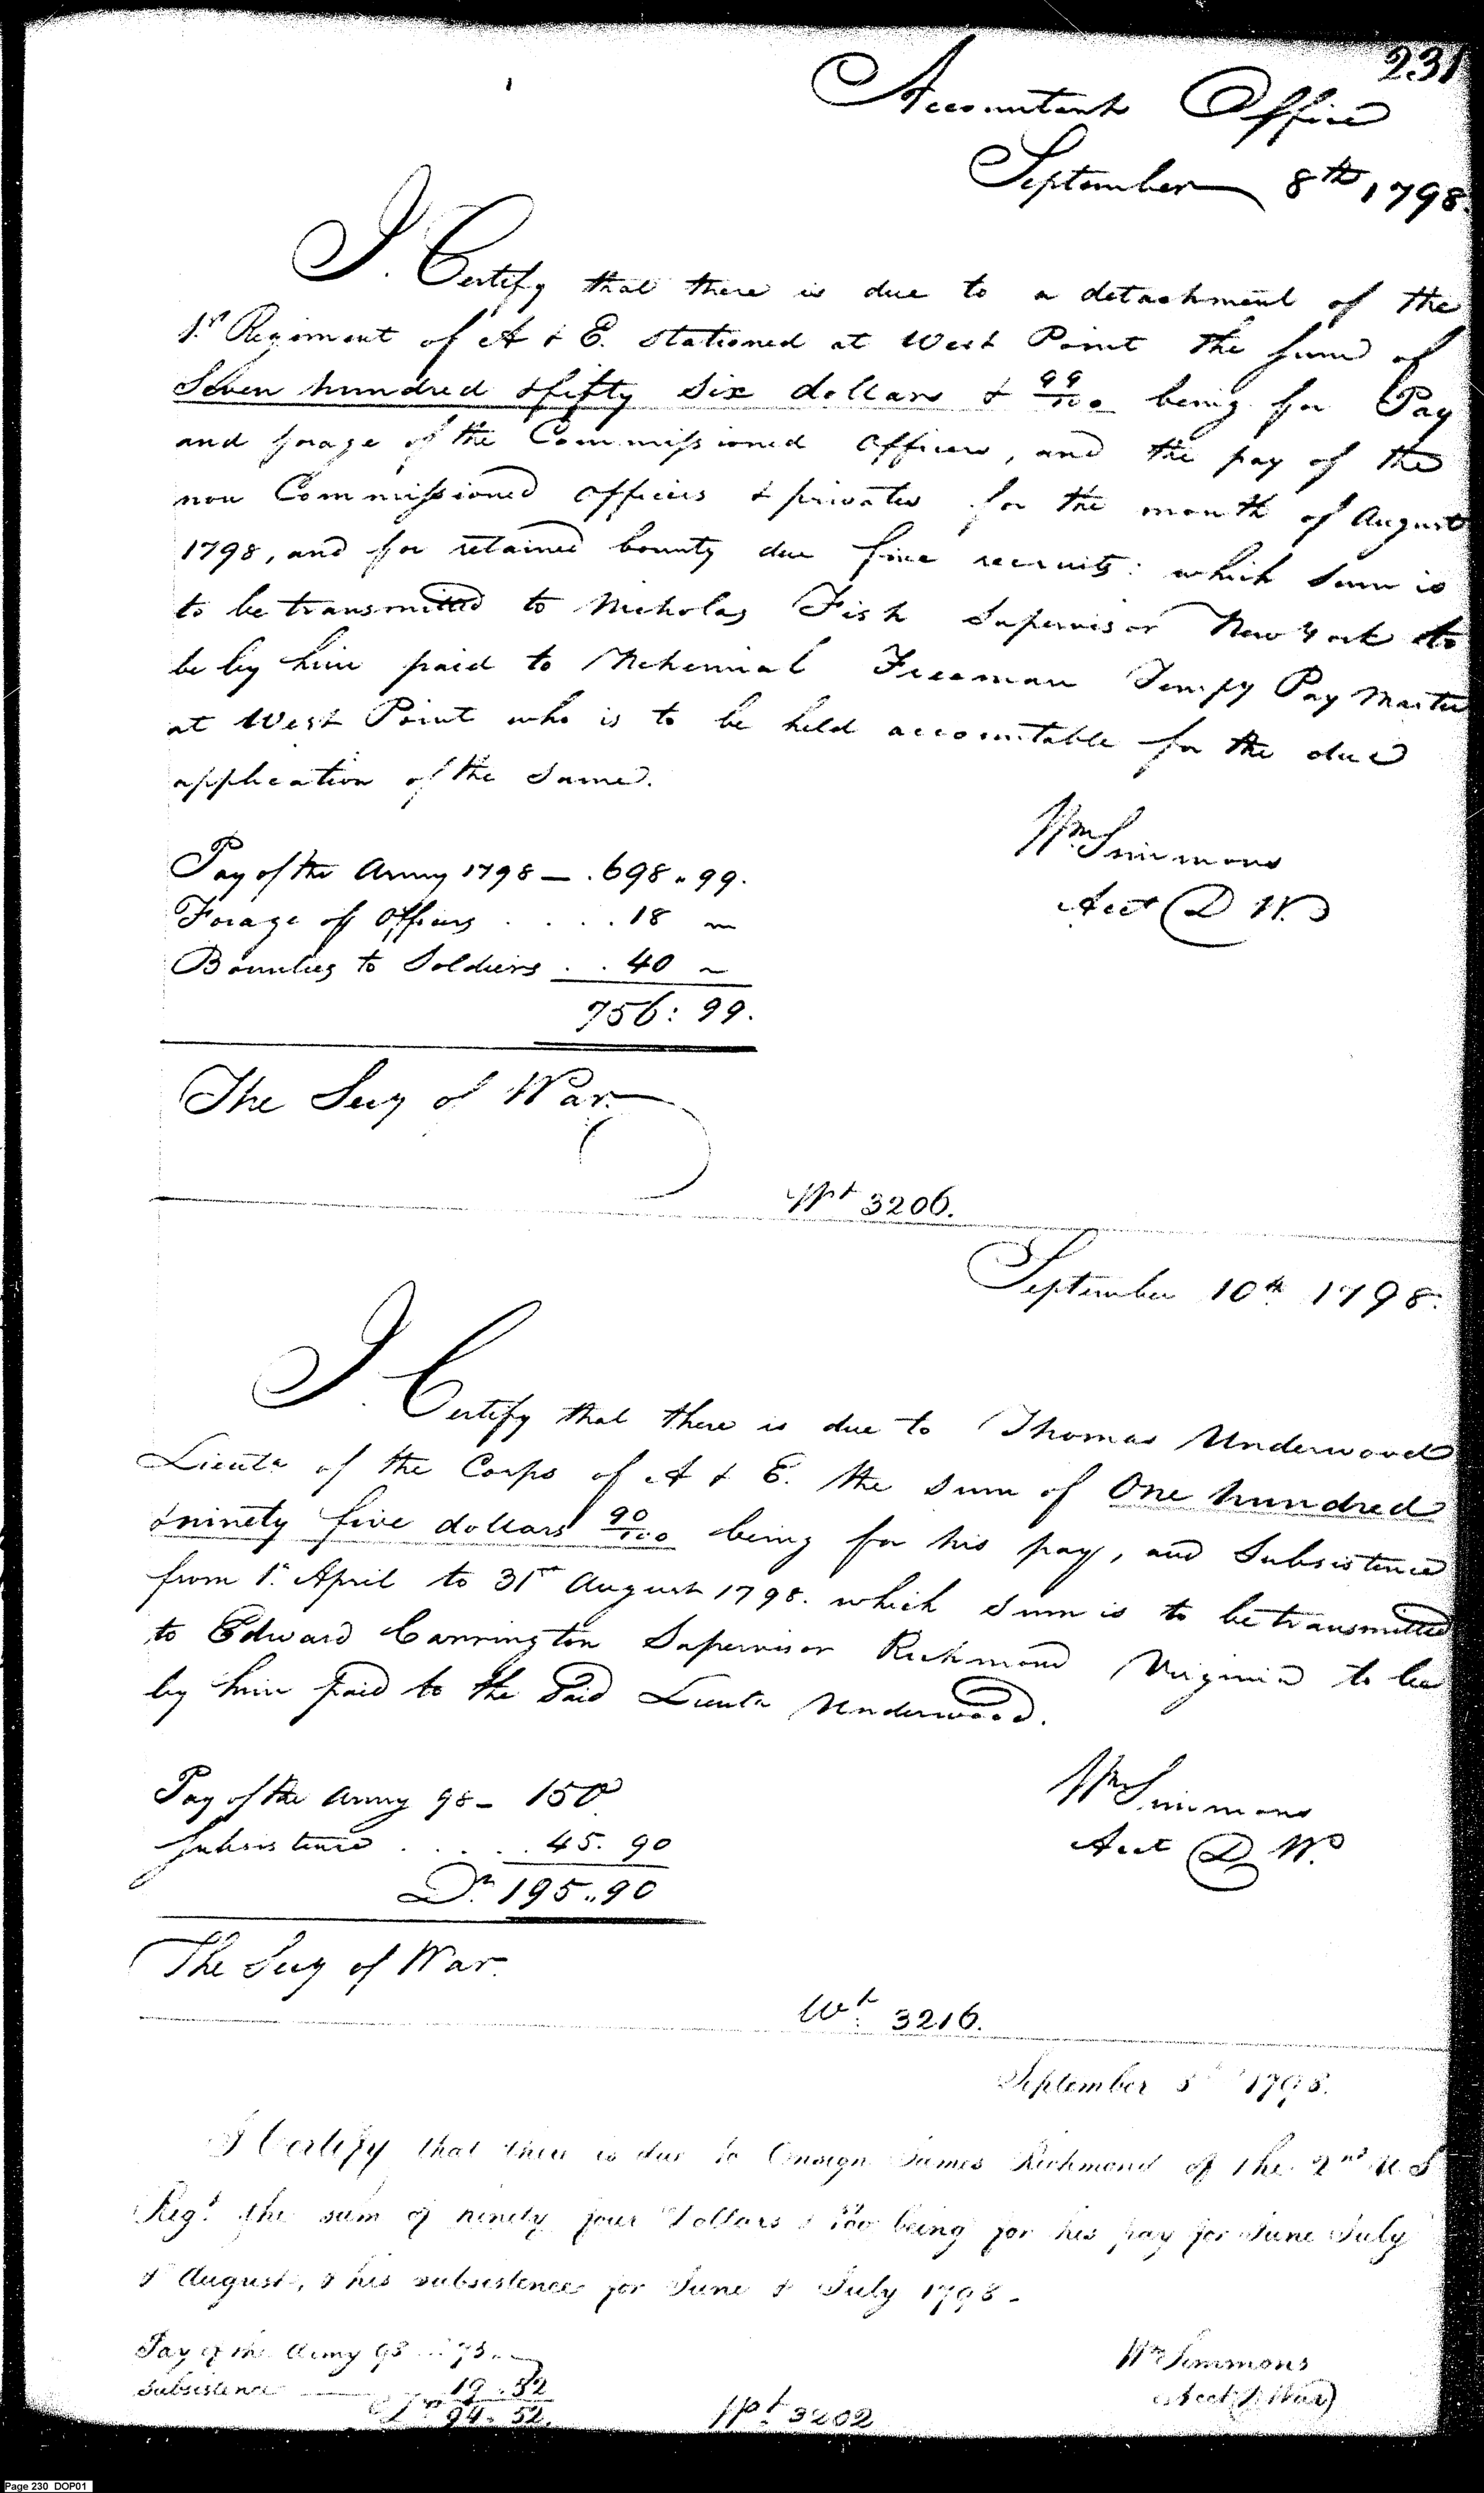 231
Accountants Office
September 8th 1798.
I Certify that there is due to a detachment of the
1st Regiment of A & E. stationed at West Point the sum of
Seven hundred & fifty six dollars & 99/100 being for Pay
and forage of the Commissioned officers, and the pay of the
non Commissioned officers & privates for the month of August
1798, and for retained bounty due five recruits: which sum is
to be transmitted to Nicholas Fish Supervisor New York to
be by him paid to Nehemiah Freeman Tempy Pay Master
at West Point who is to be held accountable for the due
application of the same.
Wm Simmons
Acct D W.
Pay of the Army 1798 — . 698 .. 99.
Forage of Officers . . . . 18 ~
Bounties to Soldiers . . 40 ~
756 : 99.
The Secy of War.
Wt 3206.
September 10th 1798.
I Certify that there is due to Thomas Underwood
Lieutt of the Corps of A & E. the sum of One hundred
& ninety five dollars 90/100 being for his pay, and Subsistence
from 1st April to 31st August 1798. which sum is to be transmitted
to Edward Carrington Supervisor Richmond Virginia to be
by him paid to the Said Lieutt Underwood.
Wm Simmons
Acct D W.
Pay of the Army 98 – 150
Subsistence . . . . 45. 90
Drs 195 .. 90
The Secy of War.
Wt. 3216.
September 8th 1798.
I Certify that there is due to Ensign James Richmond of the 2nd U S
Regt. the sum of ninety four Dollars & 52/100 being for his pay for June July
& August, & his subsistence for June & July 1798 –
Pay of the Army 98 .. 75 ..
Subsistence — 19 . 52
Drs 94 . 52.
Wt. 3202
Wm Simmons
Acct D War
Page 230 DOP01